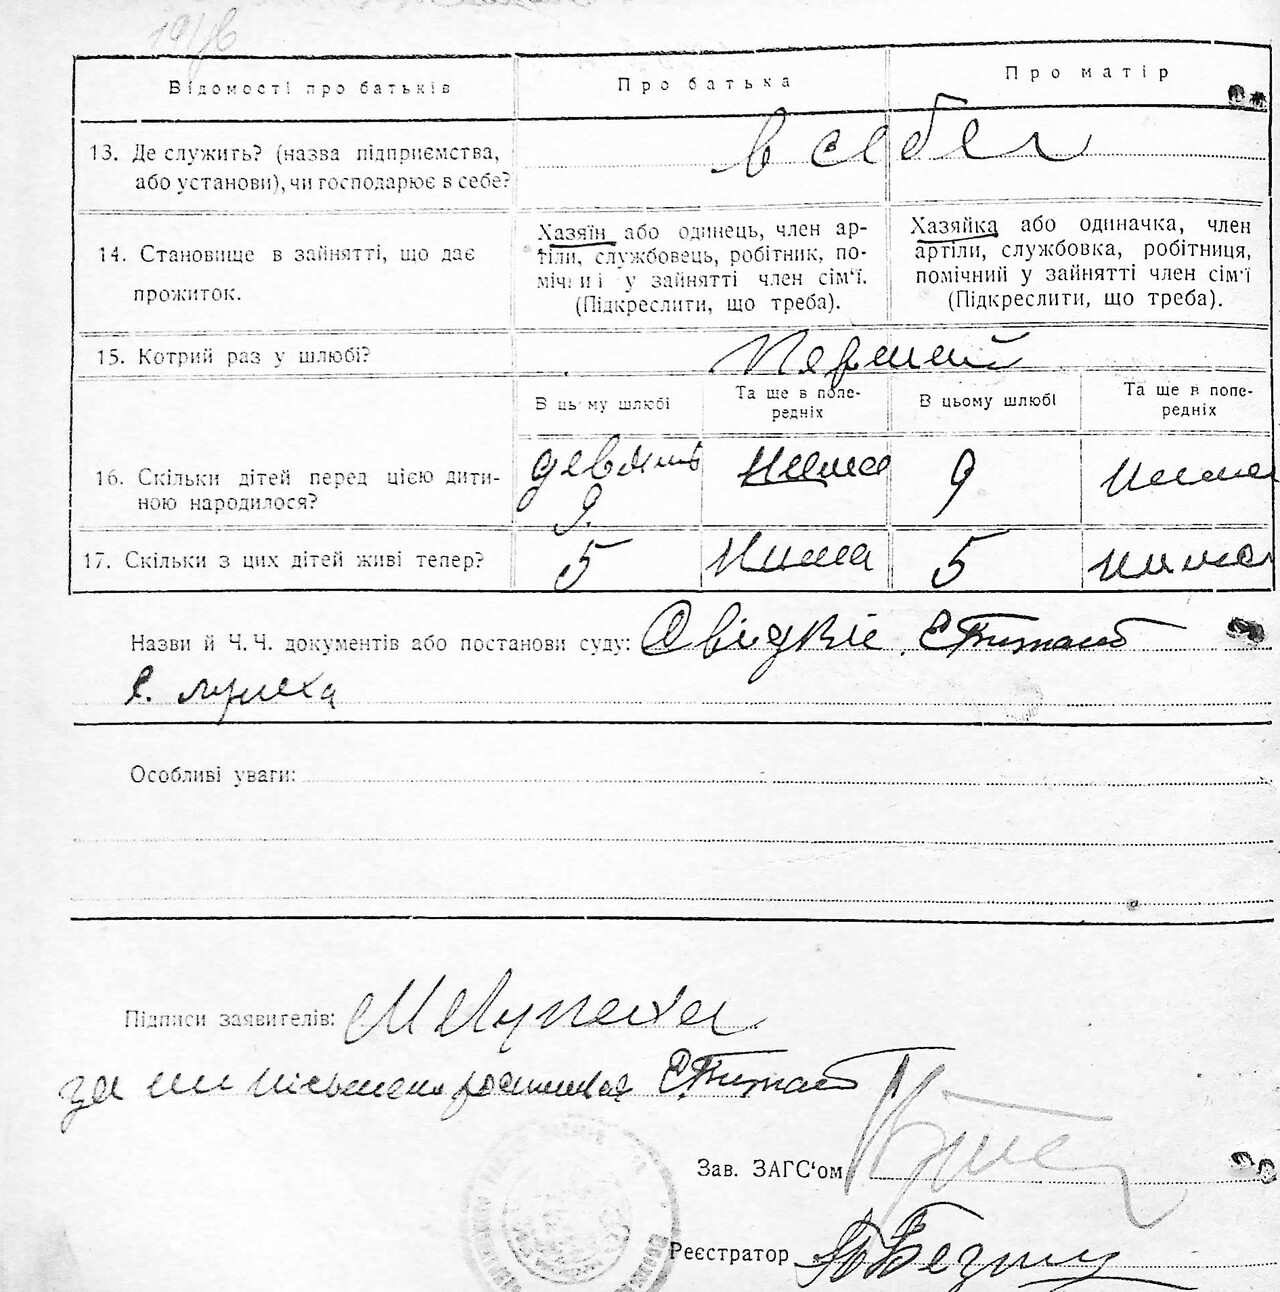 Відомості про батьків
Про батька
Про матір
13. Де служить? (назва підприємства,
або установи), чи господарює в себе?
в себе
14. Становище в зайнятті, що дає
прожиток.
Хазяїн або одинець, член ар-
тіли, службовець, робітник, по-
мічний у зайнятті член сім'ї.
(Підкреслити, що треба).
Хазяйка або одиначка, член
артіли, службовка, робітниця,
помічний у зайнятті член сім'ї
(Підкреслити, що треба).
15. Котрий раз у шлюбі?
Первий
В цьому шлюбі
Та ще в попе-
редніх
В цьому шлюбі
Та ще в попе-
редніх
16. Скільки дітей перед цією дити-
ною народилося?
девять
9.
нима
9
нима
17. Скільки з цих дітей живі тепер?
5
нима
5
нима
Назви й Ч. Ч. документів або постанови суду: Свідкіе
Особливі уваги:
Підписи заявителів:
за
Зав. ЗАГС'ом
Реєстратор